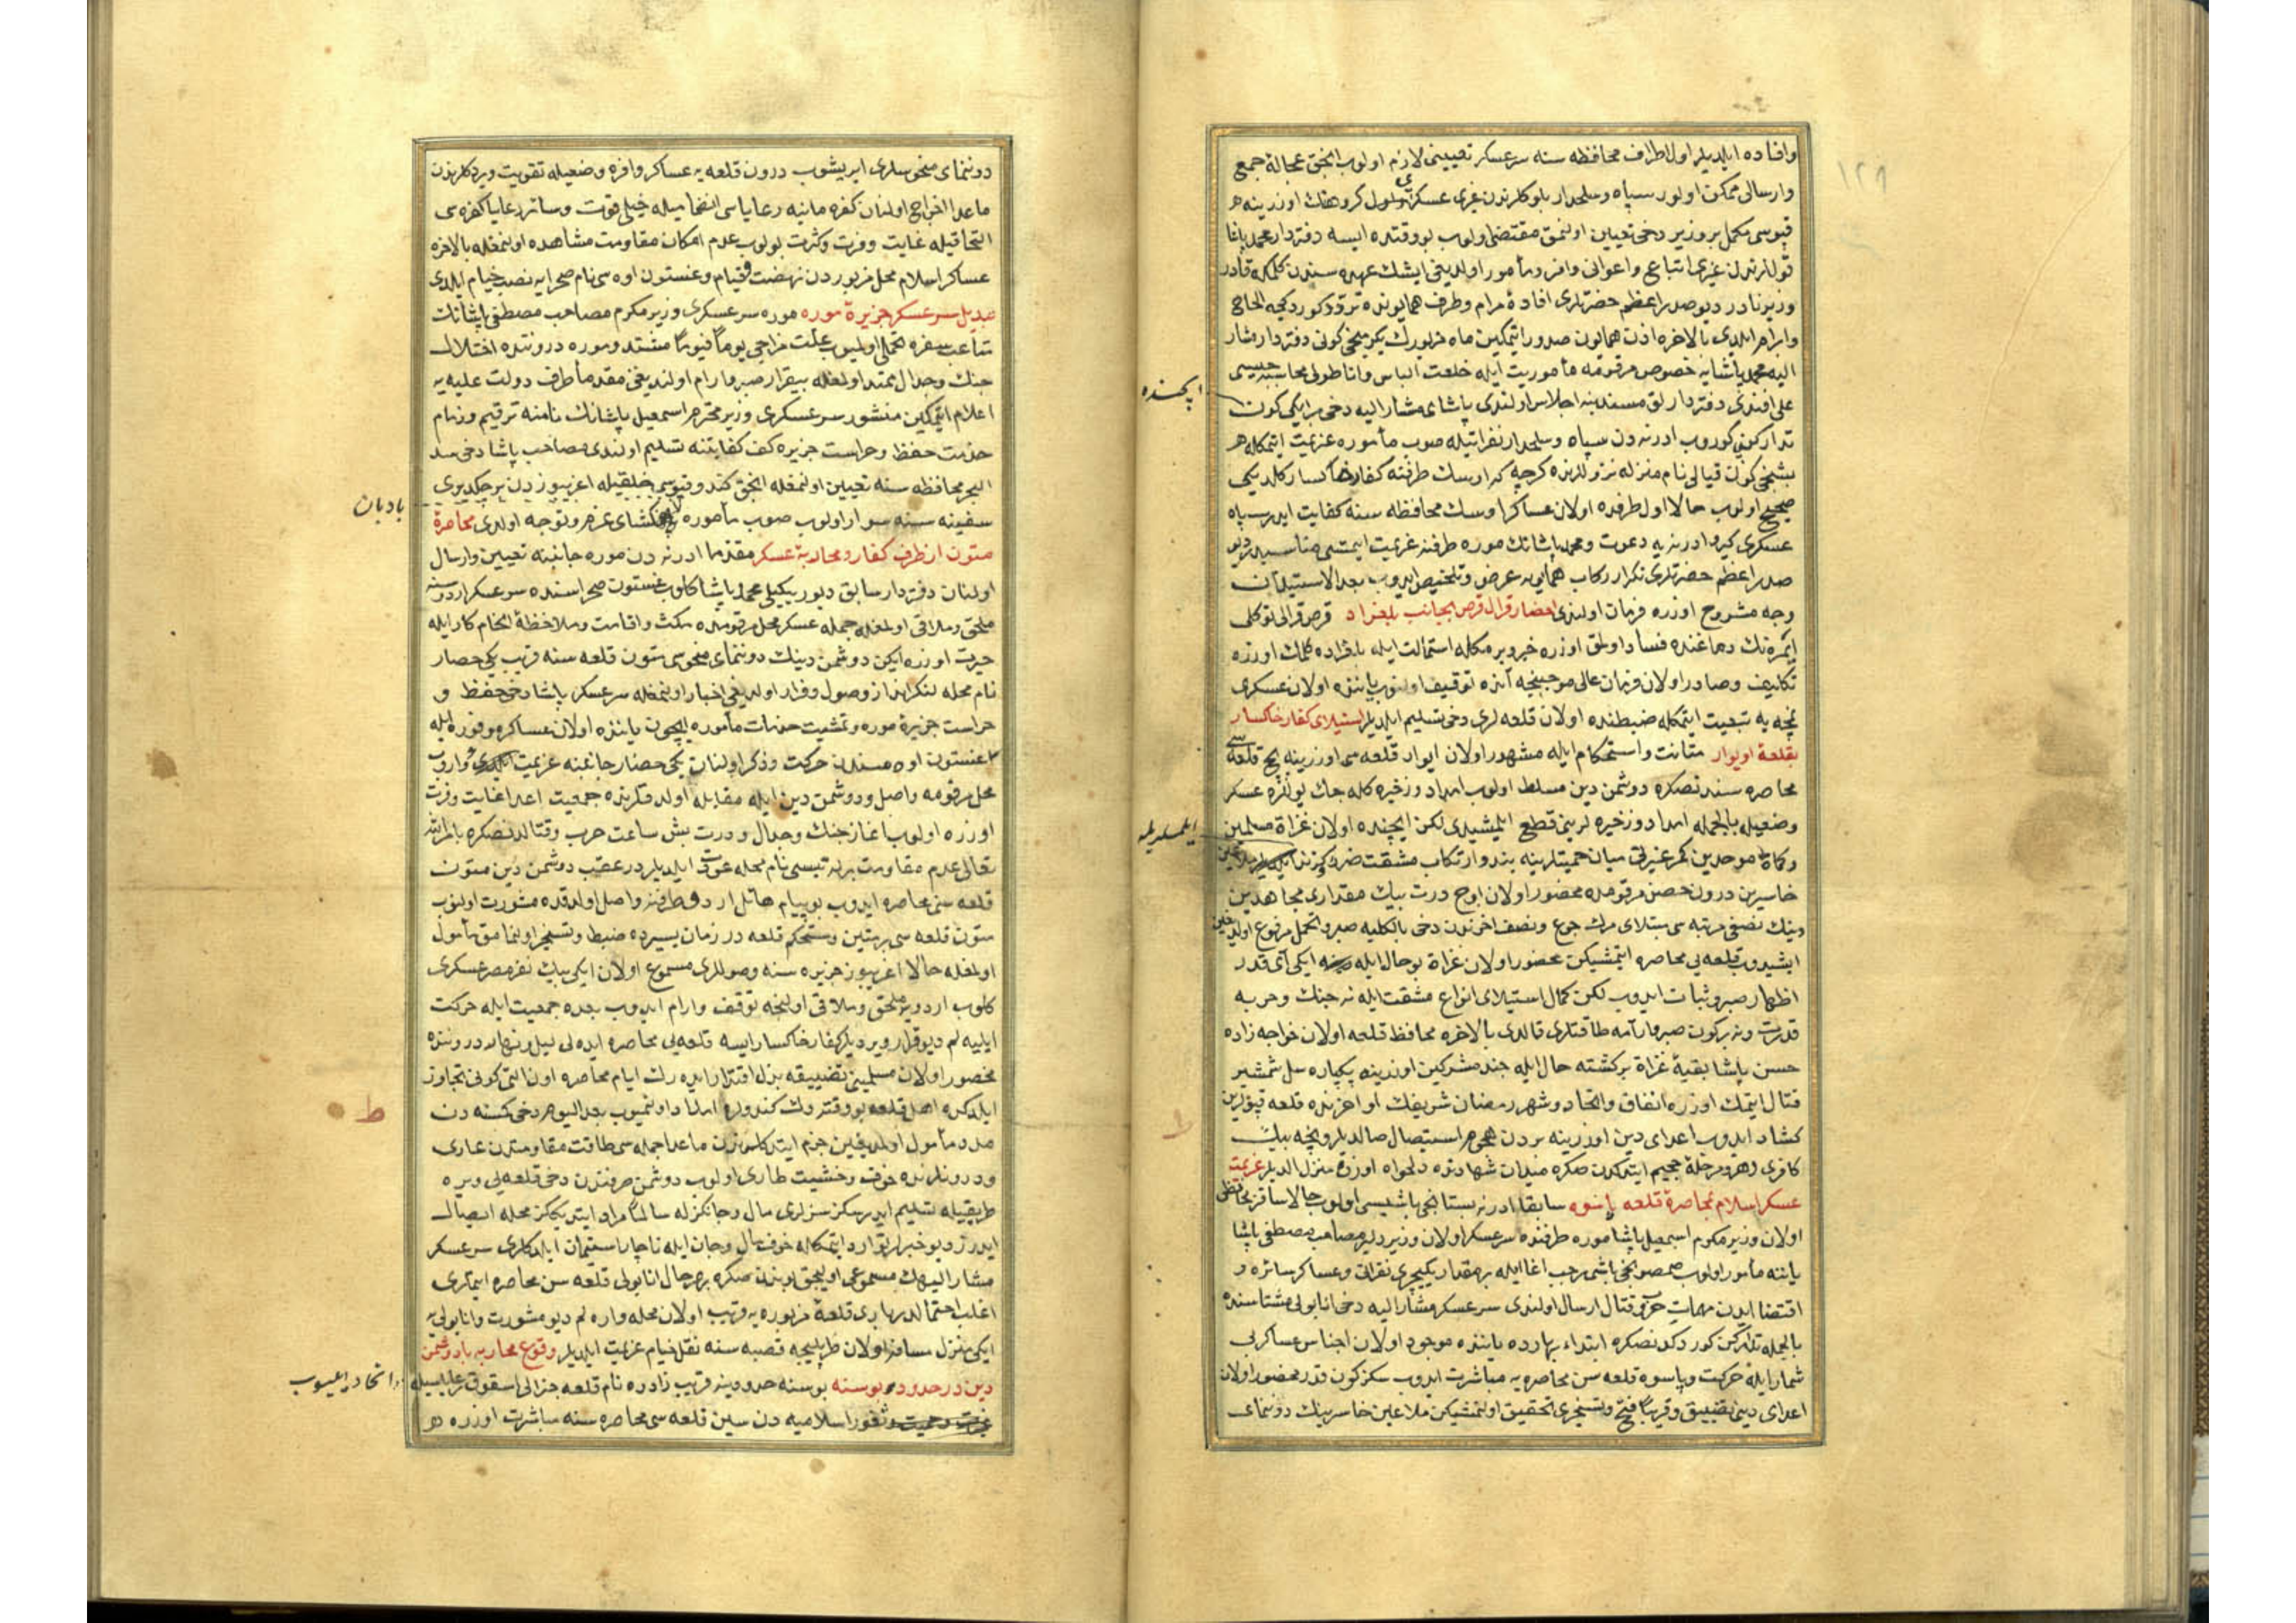 ١٢٨
وافاده ایلدیلر اول اطراف محافظه سنه سرعسکر تعیینی لازم اولوب انجق عجالةً جمع
وارسالی ممکن اولور سپاه وسلحدار بلوکلرندن غیری عسکر اولوب کروهنك اوزرینه هر
قپوسی مکمل بر وزیر دخی تعیین اولنمق مقتضی اولوب بو وقتده ایسه دفتردار محمد پاشا
قوللرندن غیری اتباع واعوانی وافر ومأمور اولدیغی ایشك عهده سندن کلمکه قادر
وزیر نادر دیو صدر اعظم حضرتلری افادۀ مرام وطرف همایونده تردد کورد کجه الحاح
وابرام ایلدی بالاخره اذن همایون صدور ایتمکین ماه مزبورك یکرمنجی کونی دفتردار مشار
الیه محمد پاشایه خصوص مرقومه مأموریت ایله خلعت الباس واناطولی محاسبه جیسی
علی افندی دفتردارلق مسندینه اجلاس اولندی پاشای مشار الیه دخی بر ایکی کون
ایچنده
تدارکن کوروب ادرنه دن سپاه وسلحدار نفراتیله صوب مأموره عزیمت ایتمکله هر
بشنجی کون قیالی نام منزله نزوللرنده کرچه که اوسك طرفنه کفار خاکسار کلدیکی
صحیح اولوب حالا اول طرفده اولان عساکر اوسك محافظه سنه کفایت ایدر سپاه
عسکری کیرو ادرنه یه دعوت ومحمد پاشانك موره طرفنه عزیمت ایتمسی مناسبدر دیو
صدر اعظم حضرتلری تکرار رکاب همایونه عرض وتلخیص ایدوب بعد الاستیذان
وجه مشروح اوزره فرمان اولندی احضار قرال قرص بجانب بلغراد قرص قرالی توکلی
ایمره نك دماغنده فساد اولمق اوزره خبر ویرمکله استمالت ایله بلغراده کلمك اوزره
تکلیف وصادر اولان فرمان عالی موجبنجه آنده توقیف اولنوب یاننده اولان عسکری
نمچه یه تبعیت ایتمکله ضبطنده اولان قلعه لری دخی تسلیم ایلدیلر استیلای کفار خاکسار
بقلعۀ اویوار متانت واستحکام ایله مشهور اولان ایوار قلعه سی اوزرینه بچ قلعه سی
محاصره سندنصکره دوشمن دین مسلط اولوب امداد وذخیره کله جك یوللره عسکر
وضعیله بالجمله امداد وذخیره لرینی قطع ایلمشیدی لکن ایچنده اولان غزاة مسلمین
وکماة موحدین کمر غیرتی میان حمیتلرینه بند وارتکاب مشقت
خاسرین درون حصن مرقومده محصور اولان اوچ درت بیك مقداری مجاهدین
دینك نصفی مرتبه سی مبتلای مرك جوع ونصف اخرندن دخی بالکلیه صبر وتحمل مرفوع اولدیغین
ایشیدوب قلعه یی محاصره ایتمشیکن محصور اولان غزاة بو حال ایله ایکی آی قدر
اظهار صبر وثبات ایدوب لکن کمال استیلای انواع مشقت ایله نه جنك وحربه
قدرت ونه بر کون صبر وآرامه طاقتلری قالدی بالاخره محافظ قلعه اولان خواجه زاده
حسن پاشا بقیۀ غزاة برکشته حال ایله جند مشرکین اوزرینه یکپاره سل شمشیر
قتال ایتمك اوزره اتفاق واتحاد وشهر رمضان شریفك اواخرنده قلعه قپولرین
کشاد ایدوب اعدای دین اوزرینه بردن هجوم استیصال صالدیلر ونچه بیك
کافری رهرو مرحلۀ جحیم ایتدکدن صکره میدان شهادتده دلخواه اوزره منزل الدیلر عزیمت
عسکر اسلام بمحاصرۀ قلعه پاسوه سابقا ادرنه بستانجی باشیسی اولوب حالا ساقز محافظی
اولان وزیر مکرم اسمعیل پاشا موره طرفنده سرعسکر اولان وزیر دلیر مصاحب مصطفی پاشا
یاننه مأمور اولوب صمصونجی باشی رجب اغا ایله بر مقدار یکیچری نفراتی وعساکر سائره و
اقتضا ایدن مهمات حرب وقتال ارسال اولندی سرعسکر مشار الیه دخی انابولی مشتاسنده
بالجمله تدارکن کوردکدنصکره ابتداء بهارده یاننده موجود اولان اجناس عساکر بی
شمار ایله حرکت وپاسوه قلعه سن محاصره یه مباشرت ایدوب سکز کون قدر محصور اولان
اعدای دینی تضییق وقریبا فتح وتسخیری تحقیق اولنمشیکن ملاعین خاسرینك دوننمای
دوننمای منحوسلری ایریشوب درون قلعه یه عساکر وافره وضعیله تقویت ویردکلرندن
ماعدا اخراج اولنان کفره مانیه رعایاسی انضمامیله خیلی قوت وسائر رعایا کفره سی
التحاقیله غایت وفرت وکثرت بولوب عدم امکان مقاومت مشاهده اولنمغله بالاخره
عساکر اسلام محل مزبوردن نهضت وقیام وغستون اوه سی نام صحرایه نصب خیام ایلدی
تبدیل سرعسکر جزیرۀ موره موره سرعسکری وزیر مکرم مصاحب مصطفی پاشانك
متاعب سفره تحملی اولمیوب علت مزاجی یوماً فیوماً مشتد وموره دروننده اختلال
جنك وجدال ممتد اولمغله بیقرار صبر وآرام اولندیغی مقدما طرف دولت علیه یه
اعلام ایتمکین منشور سرعسکری وزیر محترم اسمعیل پاشانك نامنه ترقیم وزمام
خدمت حفظ وحراست جزیره کف کفایتنه تسلیم اولندی مصاحب پاشا دخی سد
البحر محافظه سنه تعیین اولنمغله انجق کندو قپوسی خلقیله اغریبوزدن بر چکدیری
سفینه سنه سوار اولوب صوب مأموره کشای عزم وتوجه اولدی محاصرۀ
بادبان
متون از طرف کفار ومحاربۀ عسکر مقدما ادرنه دن موره جانبنه تعیین وارسال
اولنان دفتردار سابق دیوریکیلی محمد پاشا کلوب غستون صحراسنده سرعسکر اردوسنه
ملحق وملاقی اولمغله جمله عسکر محل مرقومده مکث واقامت وملاحظۀ انجام کار ایله
حیرت اوزره ایکن دوشمن دینك دوننمای منحوسی متون قلعه سنه قریب یکی حصار
نام محله لنکر انداز وصول وقرار اولدیغی اخبار اولنمغله سرعسکر پاشا دخی حفظ و
حراست جزیرۀ موره وتمشیت خدمات مأموره ایچون یاننده اولان عساکر موفوره ایله
غستون اوه سندن حرکت وذکر اولنان یکی حصار جانبنه عزیمت واروب
محل مرقومه واصل ودوشمن دین ایله مقابله اولدقلرنده جمعیت اعدا غایت وفرت
اوزره اولوب اغاز جنك وجدال ودرت بش ساعت حرب وقتالدنصکره بامر الله
تعالی عدم مقاومت برله تبسی نام محله عودت ایلدیلر در عقب دوشمن دین متون
قلعه سنی محاصره ایدوب بو پیام هائل اردو طرفنه واصل اولدقده مشورت اولنوب
متون قلعه سی بر متین ومستحکم قلعه در زمان یسیرده ضبط وتسخیر اولنمامق مأمول
اولمغله حالا اغریبوز جزیره سنه وصوللری مسموع اولان ایکی بیك نفر مصر عسکری
کلوب اردویه ملحق وملاقی اولنجه توقف وارام ایدوب بعده جمعیت ایله حرکت
ایلیه لم دیو قرار ویردیلر کفار خاکسار ایسه قلعه یی محاصره ایده لی لیل ونهار دروننده
محصور اولان مسلمینی تضییقه بذل اقتدار ایده رك ایام محاصره اون التی کونی تجاوز
ایلدکده اهل قلعه بو وقته دك کندولره امداد اولنمیوب بعد الیوم دخی کسنه دن
مدد مأمول اولمدیغین جزم ایتدکلرندن ماعدا جمله سی طاقت مقاومتدن عاری
ودرونلرنده خوف وخشیت طاری اولوب دوشمن طرفندن دخی قلعه یی ویره
طریقیله تسلیم ایدرسکز سزلری مال وجانکزله سالماً مراد ایتدیککز محله ایصال
ایدرز دیو خبرلر توارد ایتمکله خوف مال وجان ایله ناچار استیمان ایلدکلری سرعسکر
مشار الیهك مسموعی اولیجق بوندن صکره بهر حال انابولی قلعه سن محاصره ایتملری
اغلب احتمالدر باری قلعۀ مزبوره یه قریب اولان محله واره لم دیو مشورت وانابولی یه
ایکی منزل مسافه اولان طرابلیجه قصبه سنه نقل خیام عزیمت ایلدیلر وقوع محاربه با دوشمن
دین در حدود بوسنه بوسنه حدودینه قریب زادره نام قلعه جنرالی اسقوق طائفه سیله
اتحاد ایدوب
غیرت وحمیت وثغور اسلامیه دن سین قلعه سی محاصره سنه مباشرت اوزره در
ط
ط